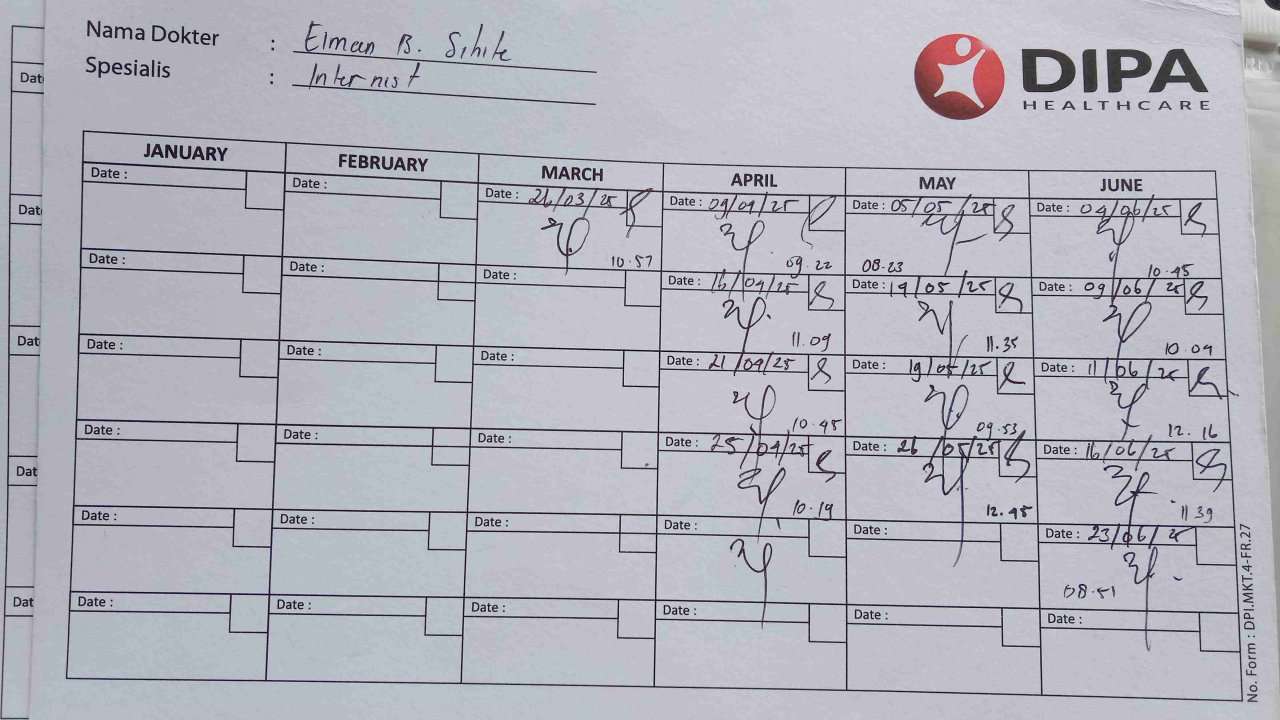 Nama Dokter : Elman B. Sihite
Spesialis : Internist
DIPA
HEALTHCARE
JANUARY FEBRUARY MARCH APRIL MAY JUNE
Date : Date : Date : 26/03/25 Date : 09/04/25 Date : 05/05/25 Date : 04/06/25
10.57 09.22 08.23 10.45
Date : Date : Date : Date : 16/04/25 Date : 14/05/25 Date : 09/06/25
11.09 11.35 10.04
Date : Date : Date : Date : 21/04/25 Date : 19/05/25 Date : 11/06/25
10.45 09.53 12.16
Date : Date : Date : Date : 25/04/25 Date : 26/05/25 Date : 16/06/25
10.19 12.45 11 39
Date : Date : Date : Date : Date : Date : 23/06/25
08.51
Date : Date : Date : Date : Date : Date :
No. Form : DPI.MKT.4-FR.27
Dat
Dat
Dat
Dat
Dat